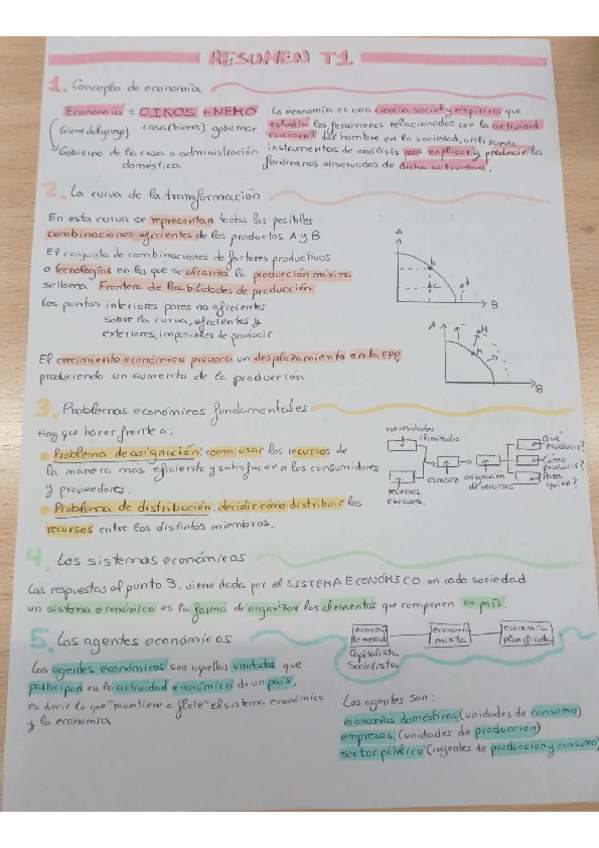 RESUMEN T1
1. Concepto de economía
Economía = OIKOS + NEMO
(viene del griego) casa (bienes) gobernar
Gobierno de la casa o administración
doméstica
La economía es una ciencia social y empírica que
estudia los fenómenos relacionados con la actividad
racional del hombre en la sociedad, utilizando
instrumentos de análisis para explicar y predecir los
fenómenos observados de dicha actividad.
2. La curva de la transformación
En esta curva se representan todas las posibles
combinaciones eficientes de los productos A y B
El conjunto de combinaciones de factores productivos
o tecnologías en las que se alcanza la producción máxima
se llama Frontera de Posibilidades de producción
Los puntos interiores pares no eficientes
sobre la curva, eficientes y
exteriores, imposibles de producir
A
h
B
El crecimiento económico provoca un desplazamiento en la FPP,
produciendo un aumento de la producción
A
H
h
B
3. Problemas económicos fundamentales
Hay que hacer frente a:
Problema de asignación: como usar los recursos de
la manera más eficiente y satisfacer a los consumidores
y proveedores.
Problema de distribución: decidir cómo distribuir los
recursos entre los distintos miembros.
necesidades
ilimitadas
recursos
escasos
escasez
asignación
de recursos
Qué
producir?
Cómo
producir?
Para
quién?
4. Los sistemas económicos
Las respuestas al punto 3, viene dada por el SISTEMA ECONÓMICO en cada sociedad
un sistema económico es la forma de organizar los elementos que componen un país.
economía
mixta
economía
planificada
Capitalista
Socialista
5. Los agentes económicos
Los agentes económicos son aquellas unidades que
participan en la actividad económica de un país,
es decir lo que "mantiene a flote" el sistema económico
y la economía
Los agentes son:
economías domésticas (unidades de consumo)
empresas (unidades de producción)
sector público (agentes de producción y consumo)